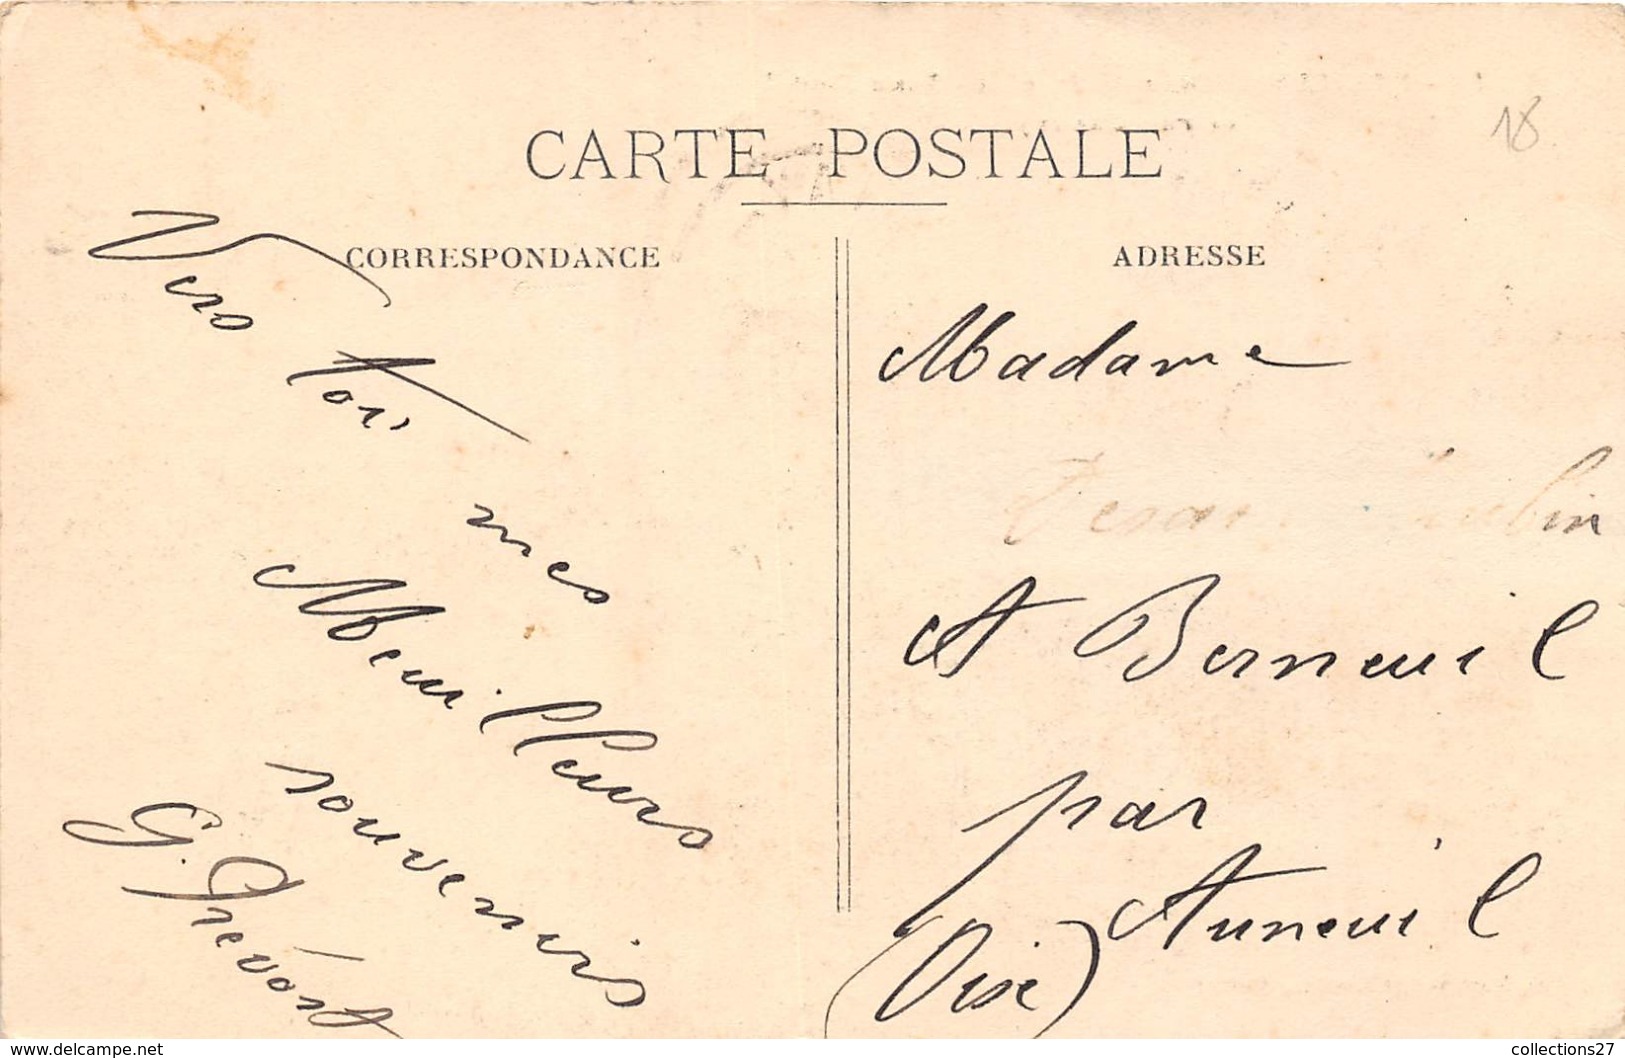 18
CARTE POSTALE
CORRESPONDANCE
Vers toi
mes
Meuilleurs
souvenirs
G. Prévost
ADRESSE
Madame
A Berneuil
par
Auneuil
(Oise)
www.delcampe.net
collections27